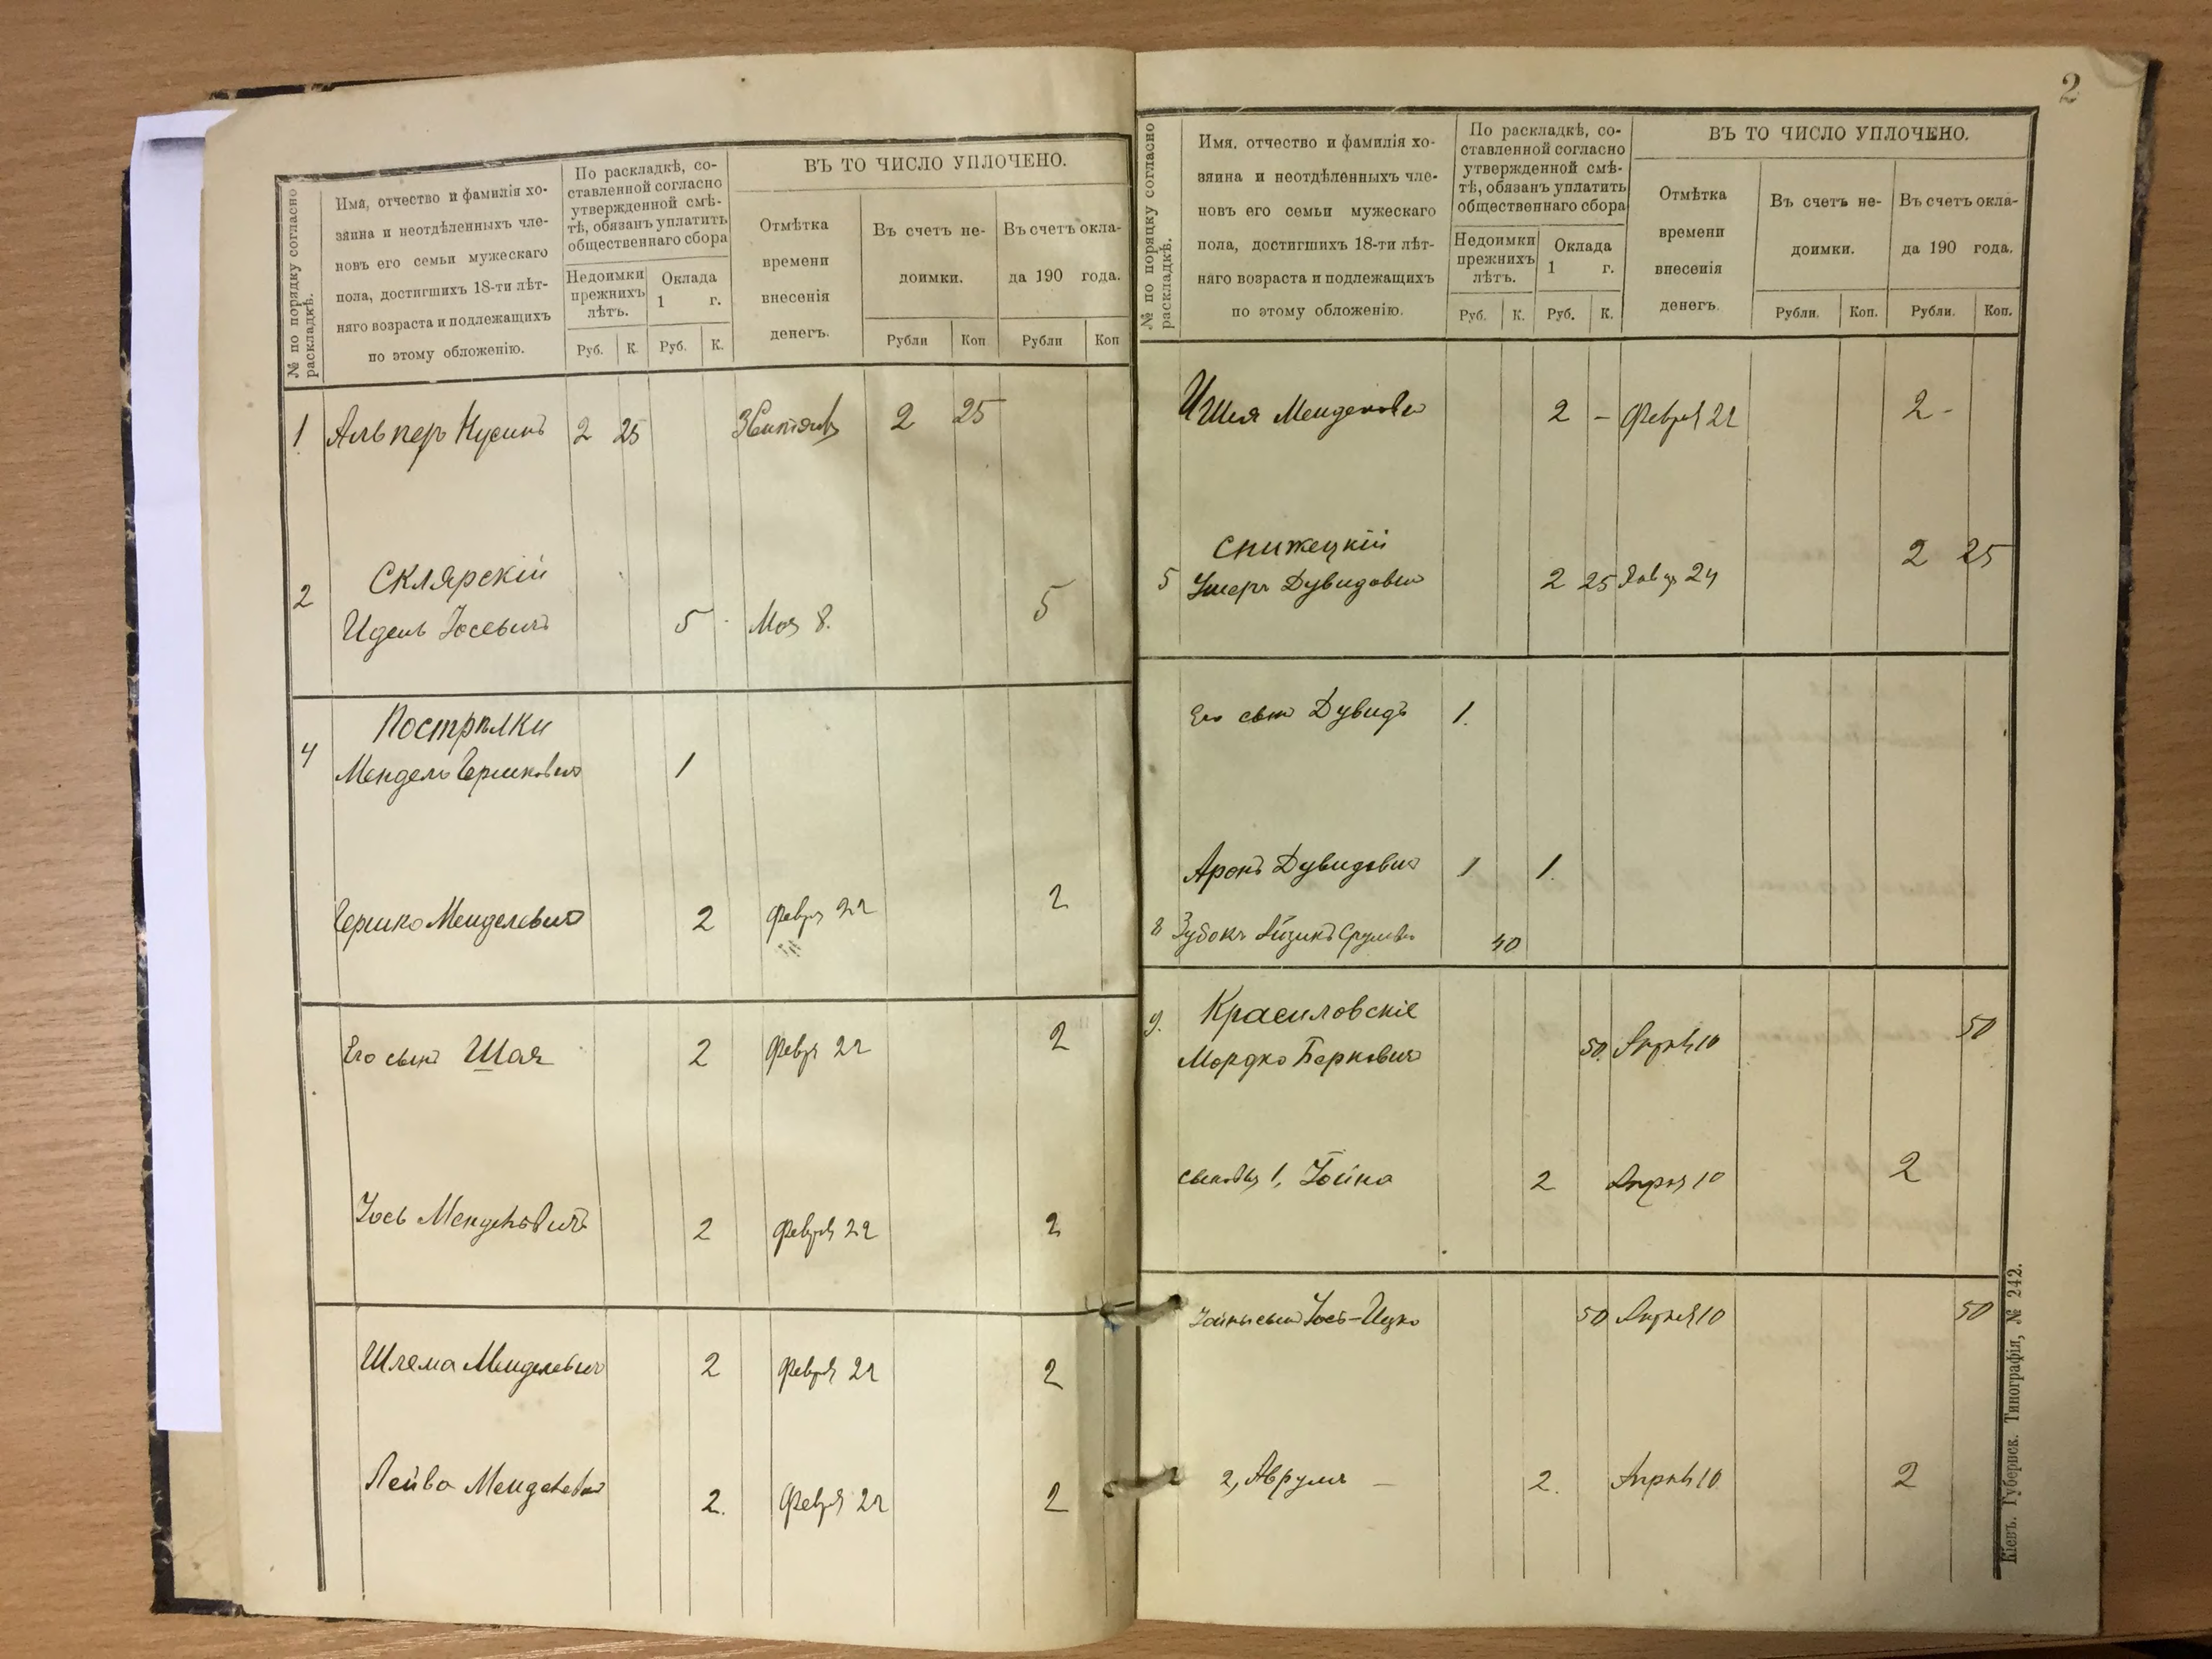 № по порядку согласно раскладкѣ.
Имя, отчество и фамилія хо-
зяина и неотдѣленныхъ чле-
новъ его семьи мужескаго
пола, достигшихъ 18-ти лѣт-
няго возраста и подлежащихъ
по этому обложенію.
По раскладкѣ, со-
ставленной согласно
утвержденной смѣ-
тѣ, обязанъ уплатить
общественнаго сбора
Недоимки
прежнихъ
лѣтъ.
Оклада
1 г.
Руб. К. Руб. К.
ВЪ ТО ЧИСЛО УПЛОЧЕНО.
Отмѣтка
времени
внесенія
денегъ.
Въ счетъ не-
доимки.
Въ счетъ окла-
да 190 года.
Рубли Коп Рубли Коп
1 Альперъ Нусинъ 2 25 2 25
Склярскій
2 Идель Іосевичъ 5 Мая 8. 5
Пострѣлки
4 Мендель Гершковичъ 1
Гершко Менделевичъ 2 Февр 22 2
Его сынъ Шая 2 Февр 22 2
Іось Менделевичъ 2 Февр 22 2
Шлема Менделевичъ 2 Февр 22 2
Лейба Менделевичъ 2. Февр 22 2
2
№ по порядку согласно раскладкѣ.
Имя, отчество и фамилія хо-
зяина и неотдѣленныхъ чле-
новъ его семьи мужескаго
пола, достигшихъ 18-ти лѣт-
няго возраста и подлежащихъ
по этому обложенію.
По раскладкѣ, со-
ставленной согласно
утвержденной смѣ-
тѣ, обязанъ уплатить
общественнаго сбора
Недоимки
прежнихъ
лѣтъ.
Оклада
1 г.
Руб. К. Руб. К.
ВЪ ТО ЧИСЛО УПЛОЧЕНО.
Отмѣтка
времени
внесенія
денегъ.
Въ счетъ не-
доимки.
Въ счетъ окла-
да 190 года.
Рубли. Коп. Рубли. Коп.
Менделевич 2 - Февра 22 2 -
Спижецкій
5 Ушеръ Дувидович 2 25 24 2 25
Его сынъ Дувидъ 1.
Аронъ Дувидович 1 1.
8 Зубокъ Айзикъ Срулев 40
9. Красиловскіе
Мордко Берковичъ 50. Апрѣл 10 50
сыновья 1, Іойна 2 Апрѣл 10 2
Іойны сынъ Іось-Ицко 50 Апрѣл 10 50
2, Аврумъ - 2. Апрѣл 10 2
Кіевъ. Губернск. Типографія, № 242.